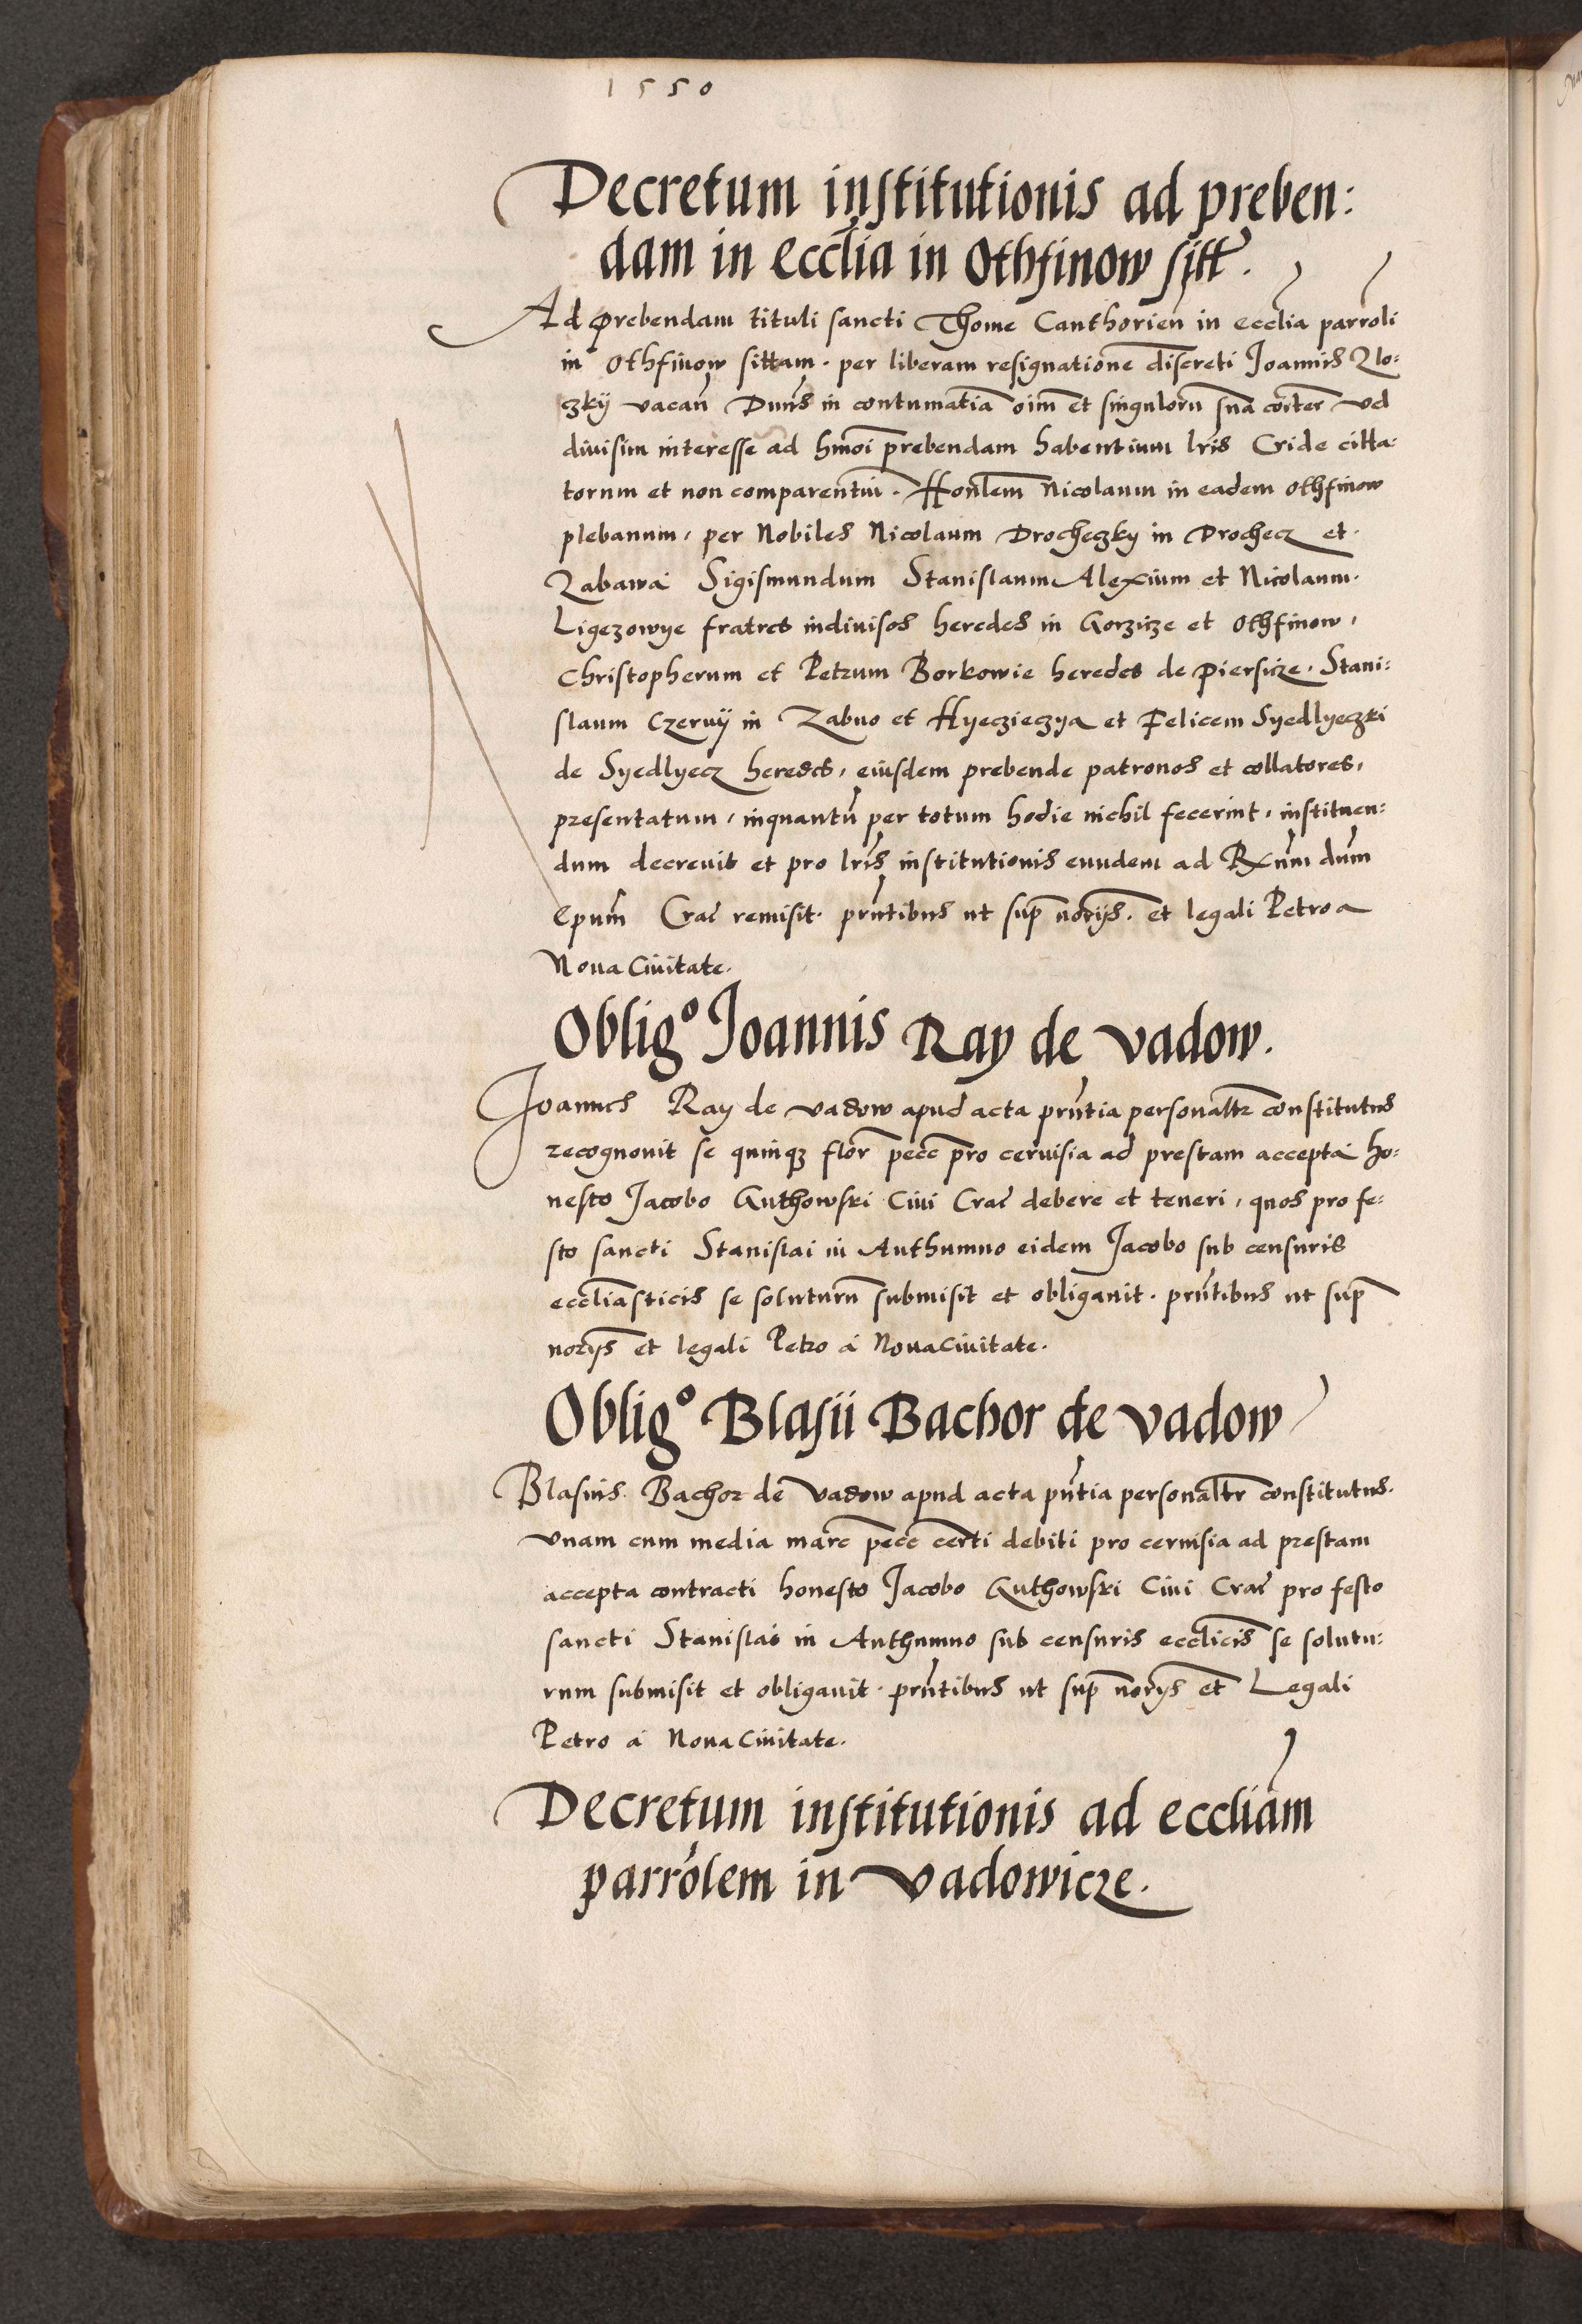 1550
Decretum institutionis ad preben:
dam in Eccl̃ia in Othfinow sitt̃.
Ad prebendam tituli sancti Thome Canthorieñ in eccl̃ia parrol̃i
in Othfinow sittam. per liberam resignationẽ discreti Joannis Zlo:
czkÿ vacañ Dñus in contumatiã oim̃ et singulorũ sua cõiter vel
diuisim interesse ad hm̃oi prebendam habentium lr̃is Cride citta:
torum et non comparentiũ. Hon̄lem Nicolaum in eadem Othfinow
plebanum, per Nobiles Nicolaum Drocheczky in Drochecz et
Zabawa Sigismundum Stanislaum Alexium et Nicolaum
Ligezowye fratres indiuisos heredes in Gorzicze et Othfinow,
Christopherum et Petrum Borkowie heredes de Piersicze. Stani:
slaum Czernÿ in Zabno et Hyeczieczya et Felicem Syedlyeczki
de Syedlyecz heredes, eiusdem prebende patronos et collatores,
presentatum, inquantũ per totum hodie nichil fecerint, instituen:
dum decreuit et pro lr̃is institutionis eundem ad Rx̃num dñum
Epum̃ Crac̃ remisit. prñtibus ut sup̃ nor̃ijs. et legali Petro a
Noua Ciuitate.
Oblig.º Joannis Ray de Vadow.
Joannes Ray de Vadow apud acta prñtia personalr̃ constitutus
recognouit se quinqz flor̃ pecc̃ pro ceruisia ad prestam accepta ho:
nesto Jacobo Guthowski Ciui Crac̃ debere et teneri, quos pro fe:
sto sancti Stanislai in Authumno eidem Jacobo sub censuris
eccl̃iasticis se soluturũ submisit et obligauit. prñtibus ut sup̃
nor̃ijs et legali Petro á Noua Ciuitate.
Oblig.º Blasii Bachor de Vadow
Blasius Bachor de Vadow apud acta pñtia personalr̃ constitutus.
Vnam cum media marc̃ pecc̃ certi debiti pro ceruisia ad prestam
accepta contracti honesto Jacobo Guthowski Ciui Crac̃ pro festo
sancti Stanislai in Authumno sub censuris eccl̃icis se solutu:
rum submisit et obligauit. prñtibus ut sup̃ nor̃ijs et Legali
Petro á Noua Ciuitate.
Decretum institutionis ad eccl̃iam
parrol̃em in Vadowicze.